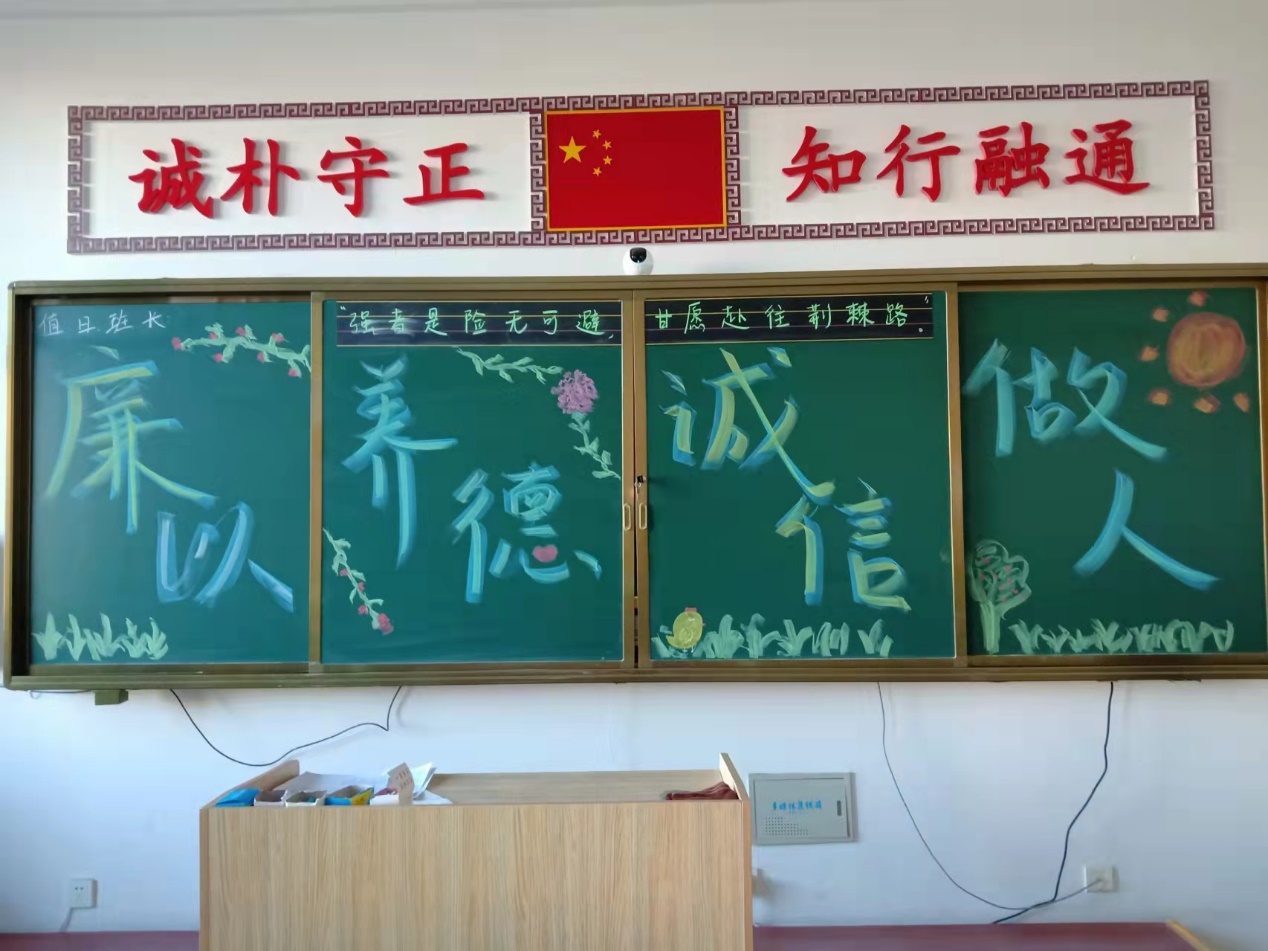 诚朴守正 知行融通
值日班长
“强者是险无可避，甘愿赴往荆棘路。”
廉以养德 诚信做人